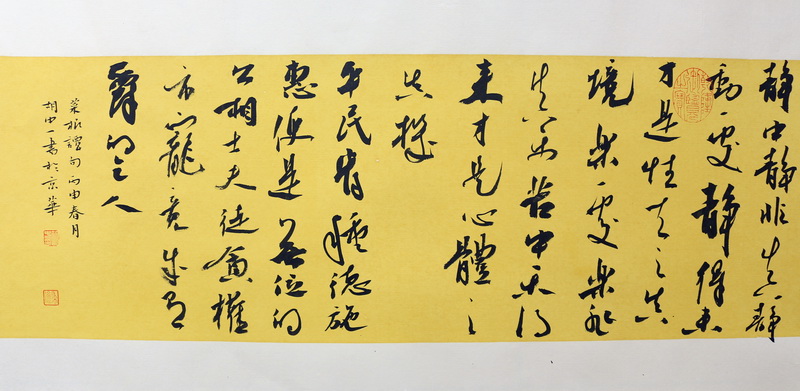 靜中靜非真靜
動處靜得來
才是性天之真
境樂處樂非
真樂苦中樂得
來才是心體之
真機
平民肯種德施
惠便是無位的
公相士夫徒貪權
市寵竟成有
爵的乞人
菜根譚句丙申春月
胡中一書於京華